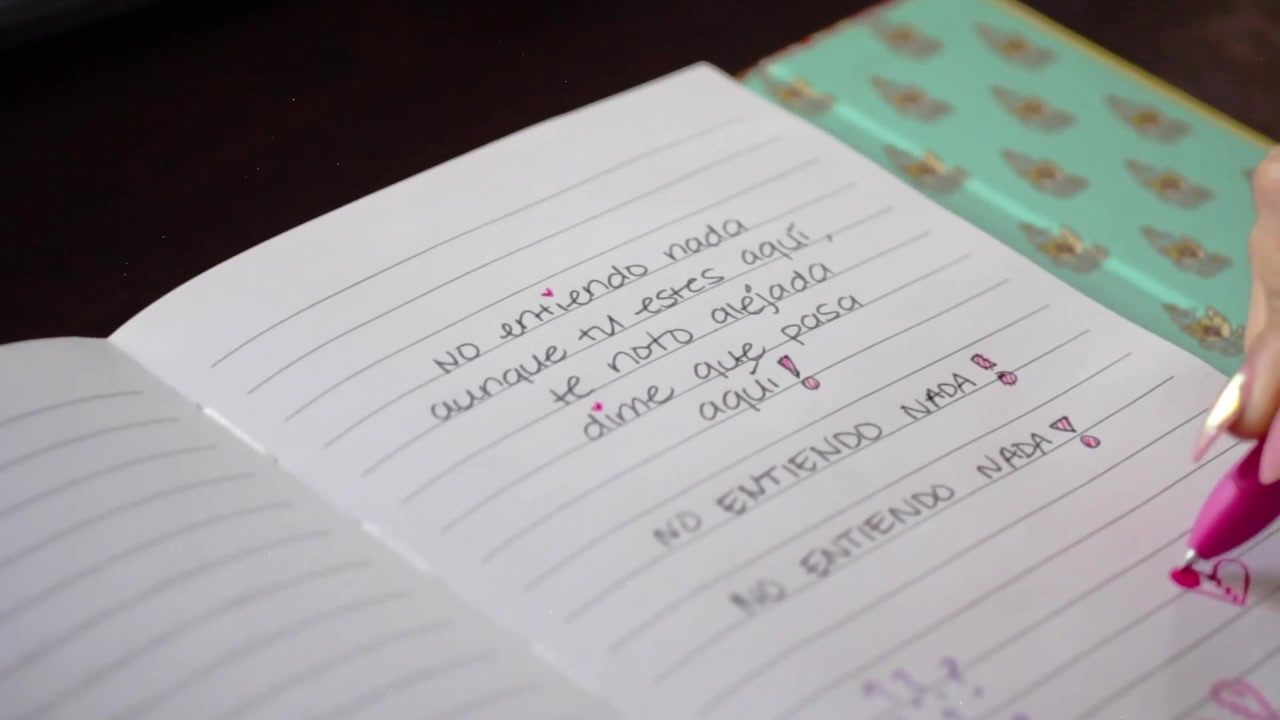 NO entiendo nada
aunque tu estes aquí,
te noto alejada
dime que pasa
aquí!
NO ENTIENDO NADA!
NO ENTIENDO NADA!